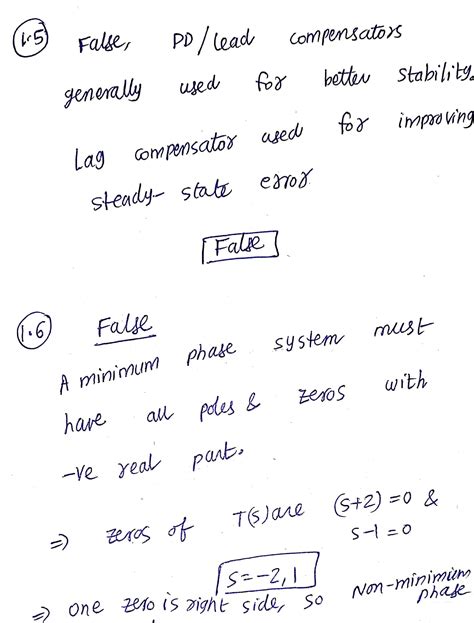 1.5 False, PD/lead compensators
generally used for better stability.
Lag compensator used for improving
steady-state error
False
1.6 False
A minimum phase system must
have all poles & zeros with
-ve real part.
⇒ zeros of T(s) are (s+2)=0 &
s-1=0
s=-2,1
⇒ one zero is right side, so Non-minimum
phase